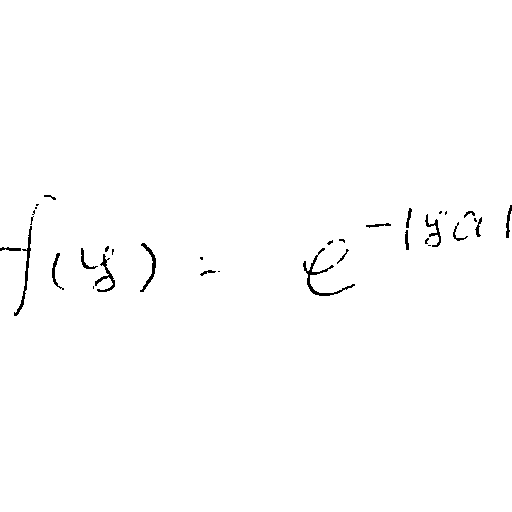 f(y) = e^{-|ya|}